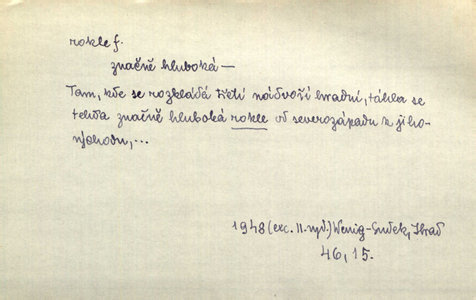 rokle f.
značně hluboká —
Tam, kde se rozkládá třetí nádvoří hradní, táhla se
tehda značně hluboká rokle od severozápadu k jiho-
východu,...
1948 (exc. II. vyd.) Wenig-Gudek, Hrad
46, 15.